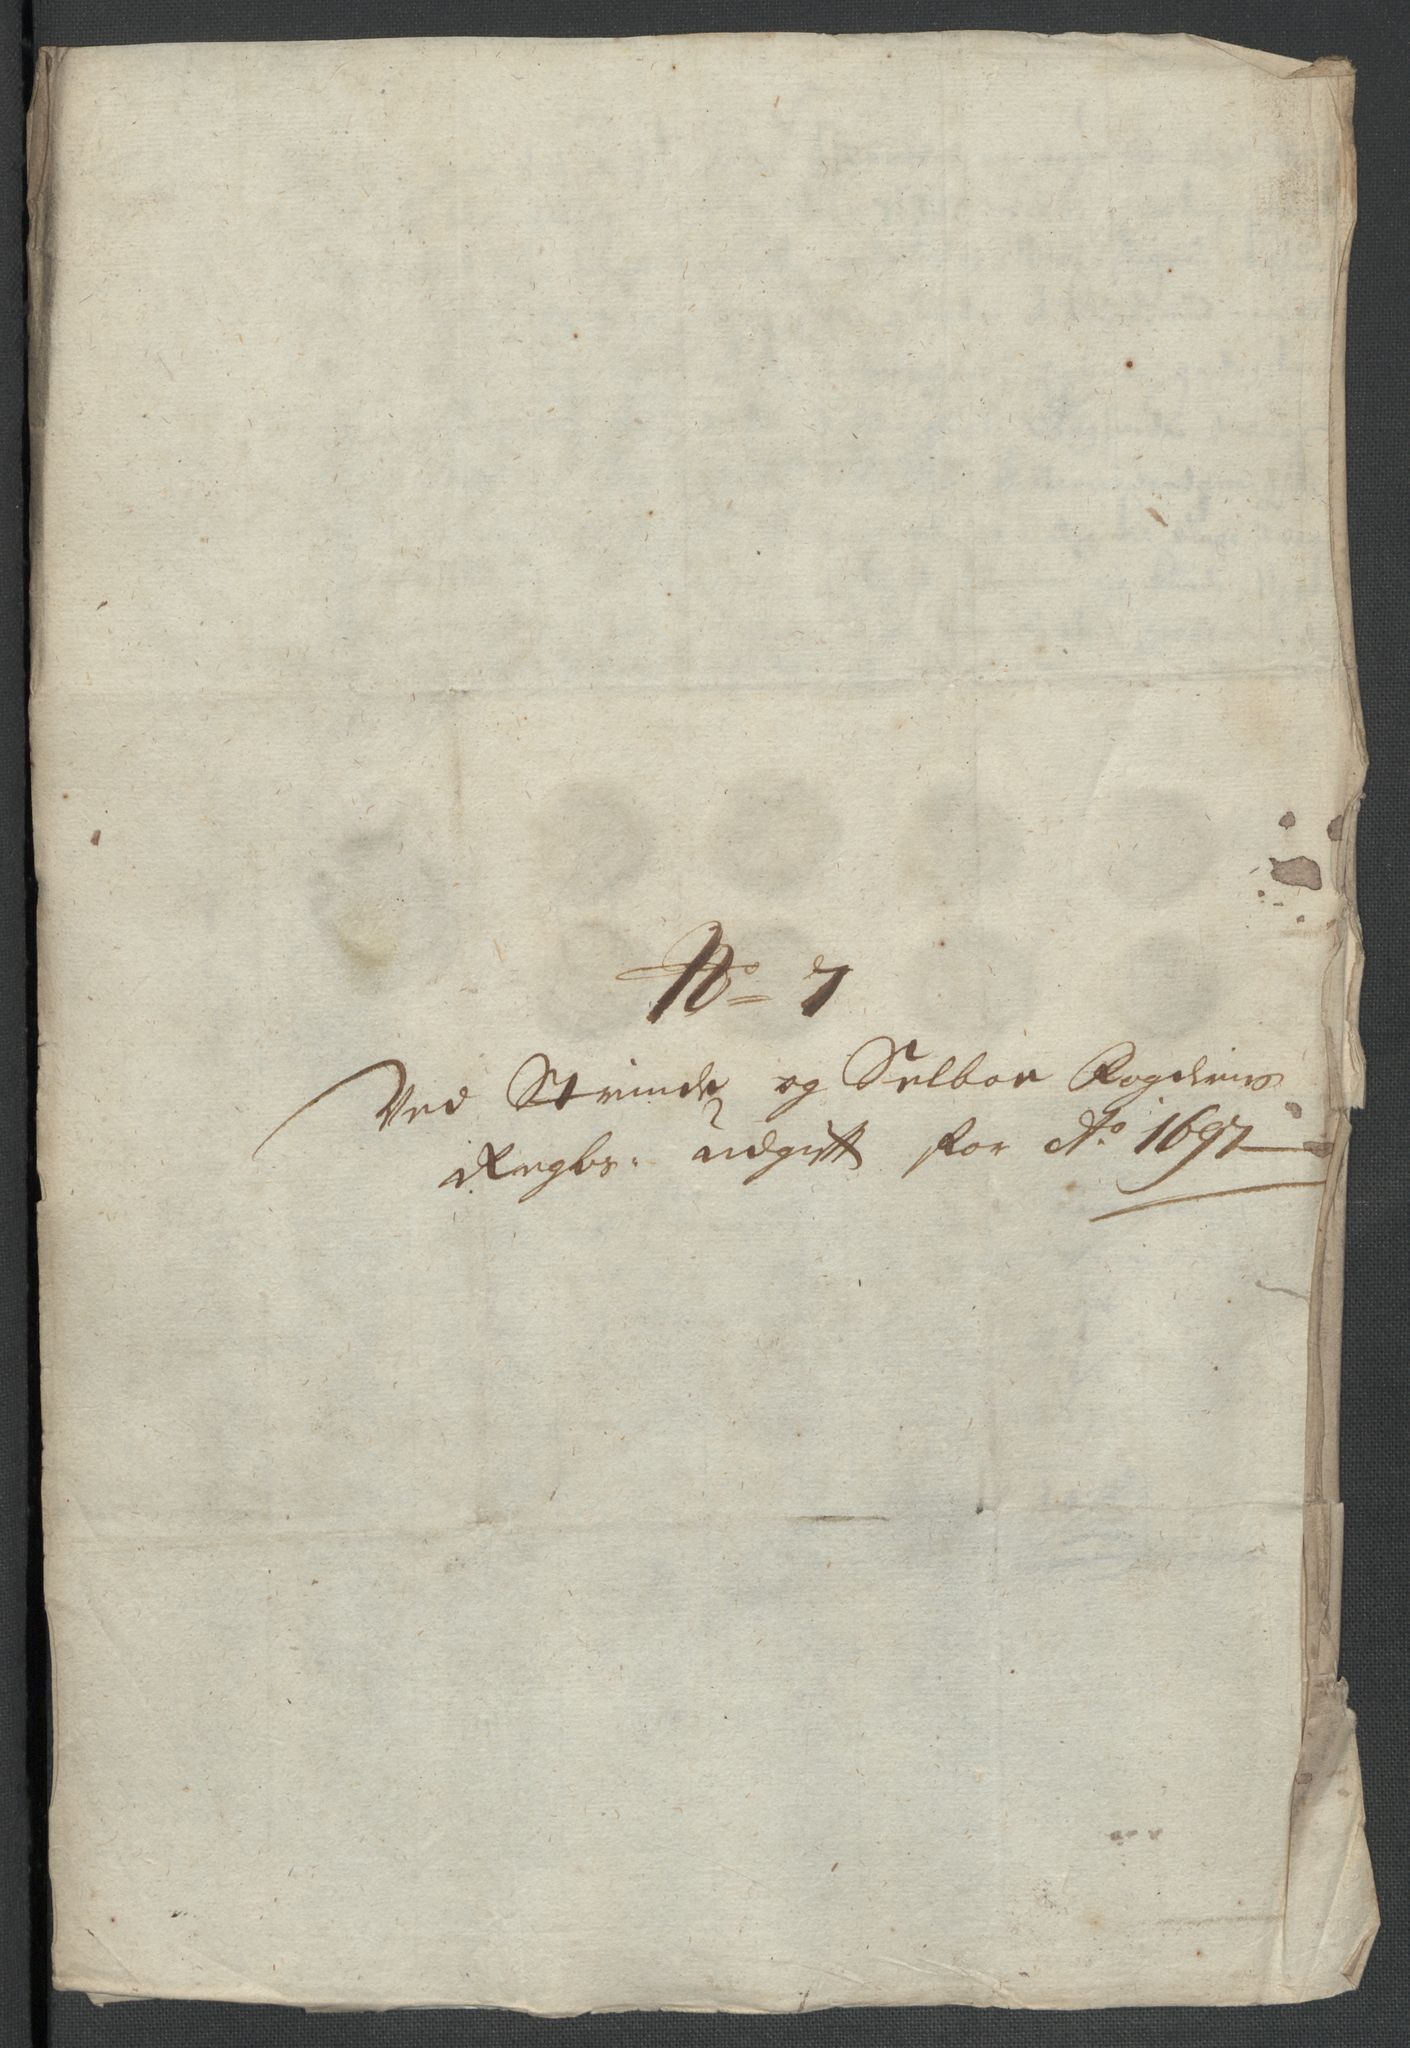 No 7
Ved Strinde og Selboe Fogderies
Regbs: udgifft for Ao 1697